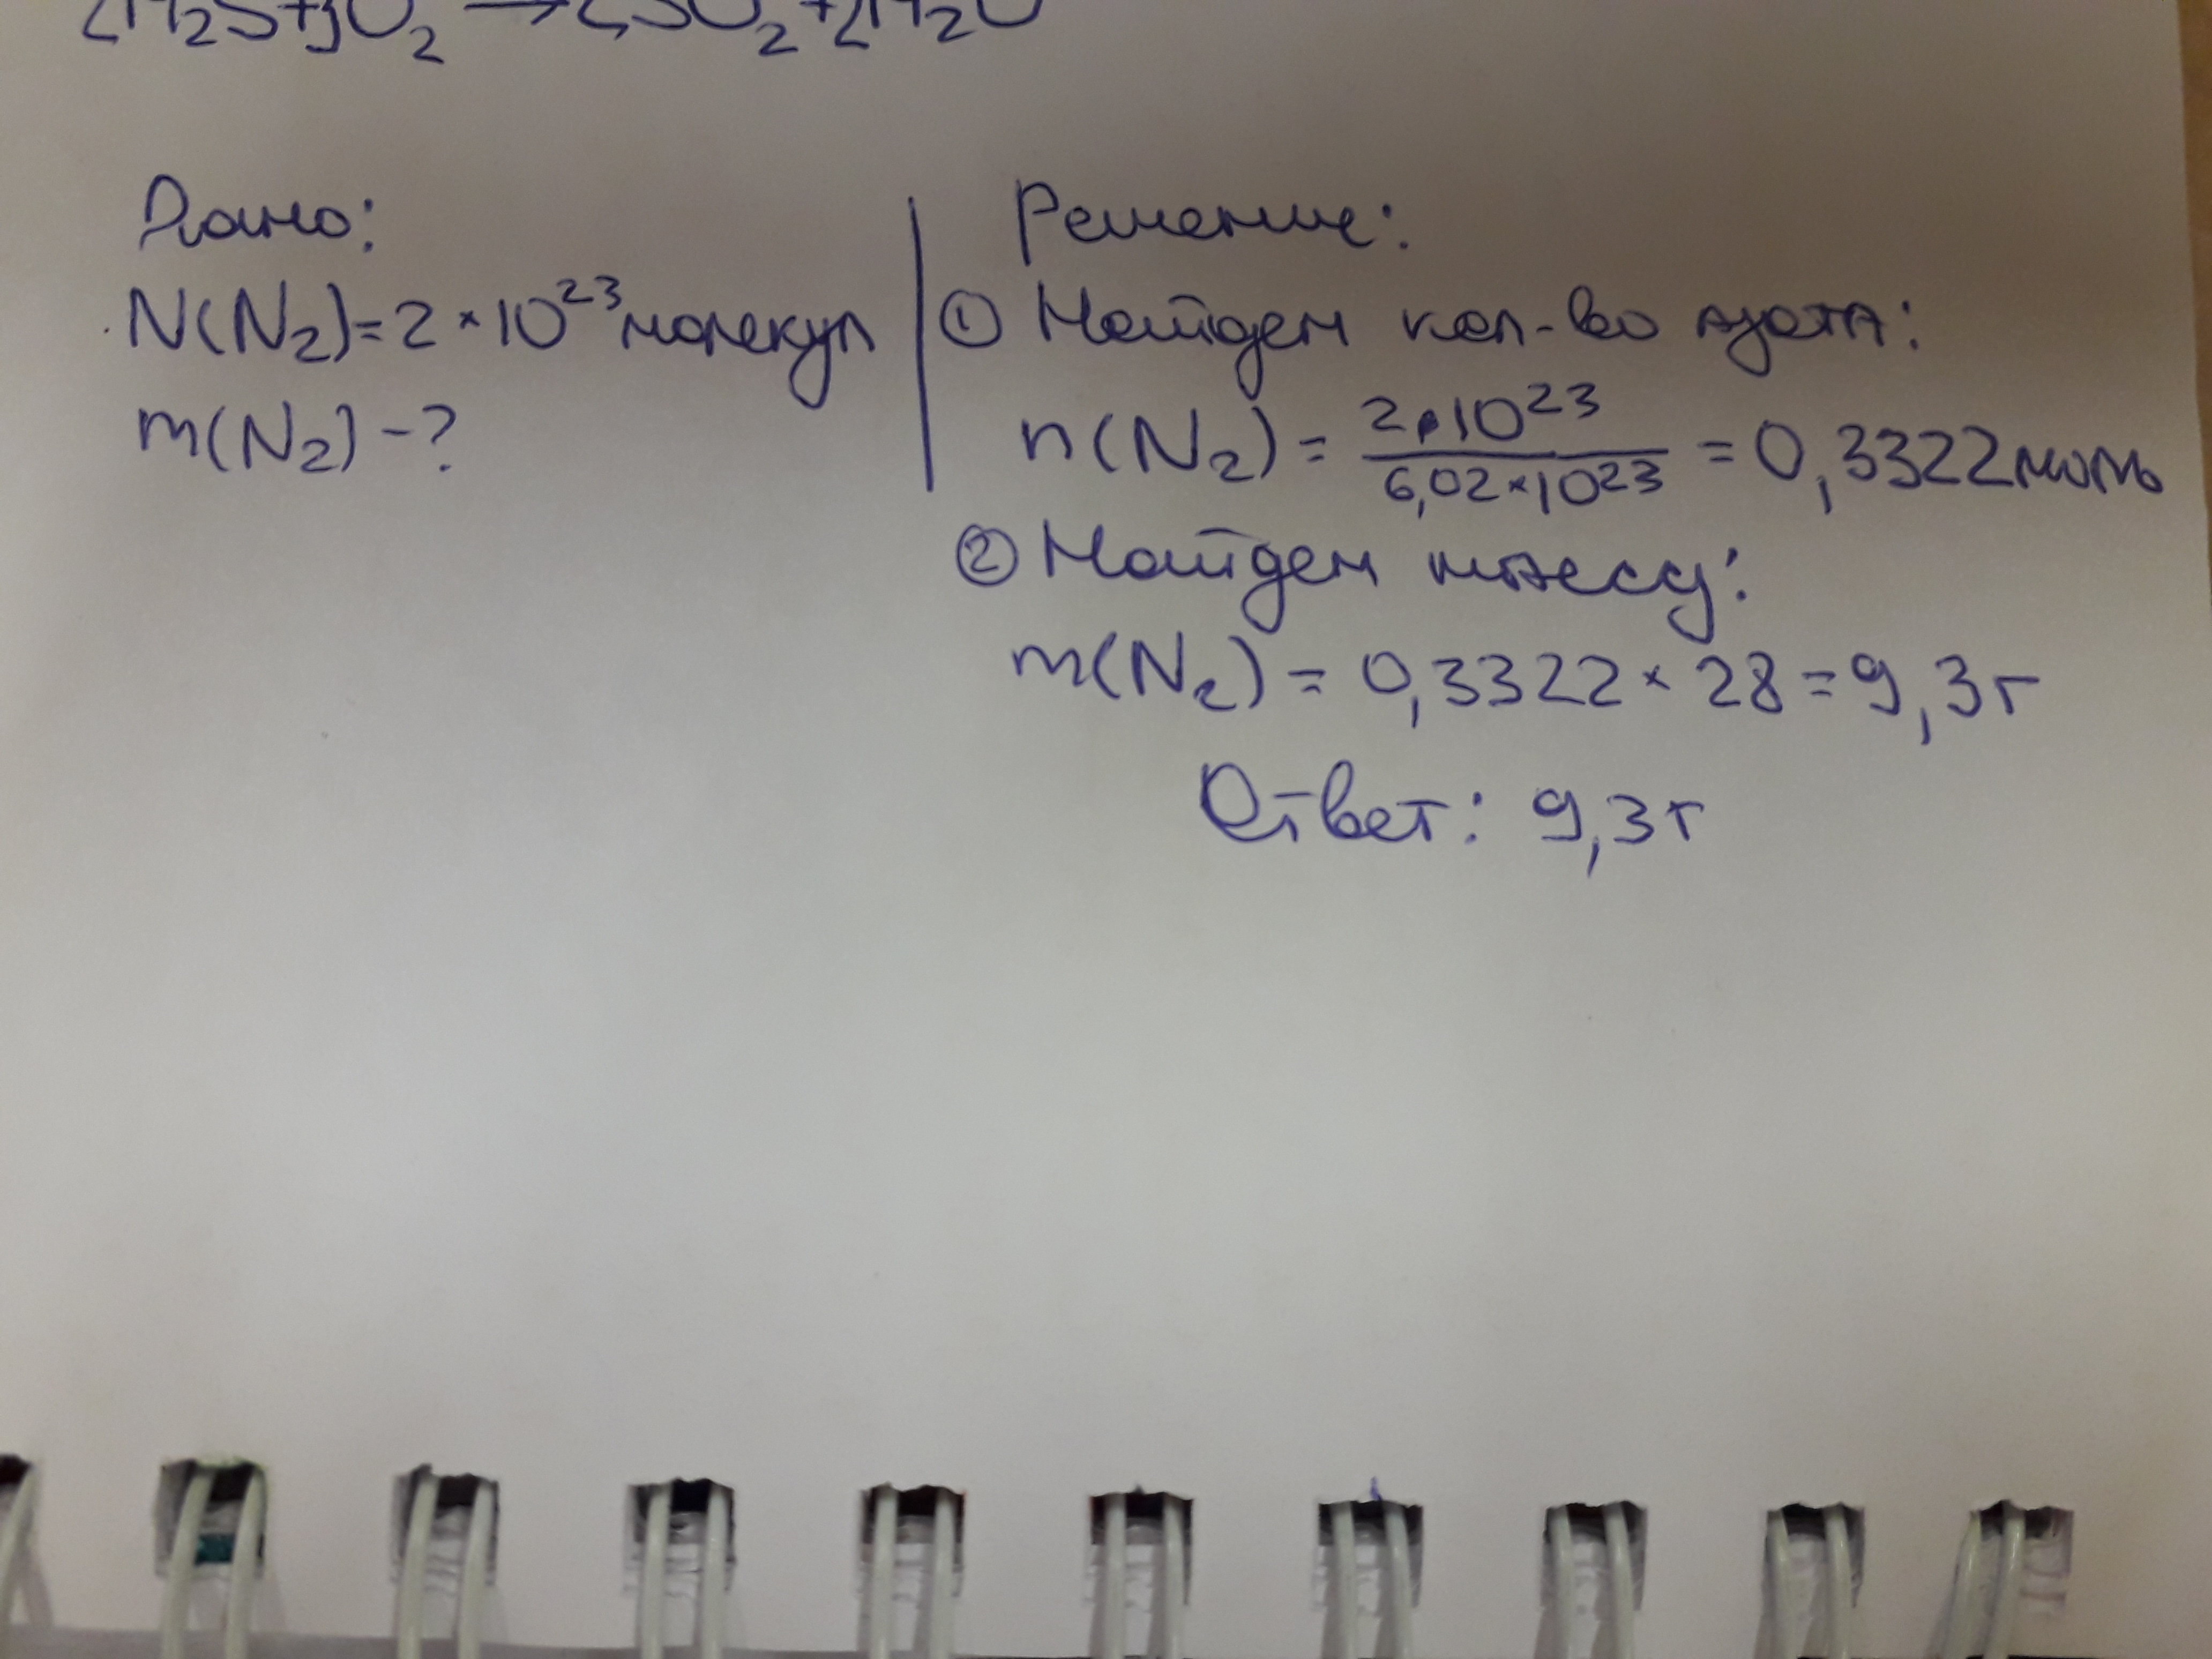 2H₂S+3O₂ → 2SO₂+2H₂O
Дано:
N(N₂)=2×10²³ молекул
m(N₂) -?
Решение:
① Найдем кол-во азота:
n(N₂) = 2·10²³ / 6,02×10²³ = 0,3322 моль
② Найдем массу:
m(N₂) = 0,3322 × 28 = 9,3 г
Ответ: 9,3 г